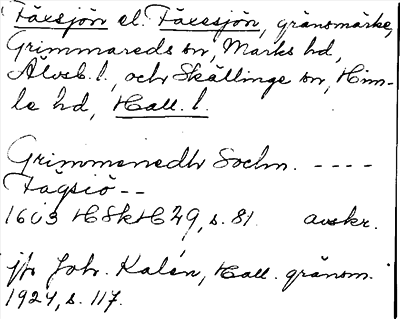 Faxsjön el. Faxesjön, gränsmärke,
Grimmareds sn, Marks hd,
Älvsb. l., och Skällinge sn, Him-
le hd, Hall. l.
Grimmeredh Sochn. ----
Fägsiö --
1603 HSkH 29, s. 81. avskr.
jfr Joh. Kalén, Hall. gränsm.
1924, s. 117.